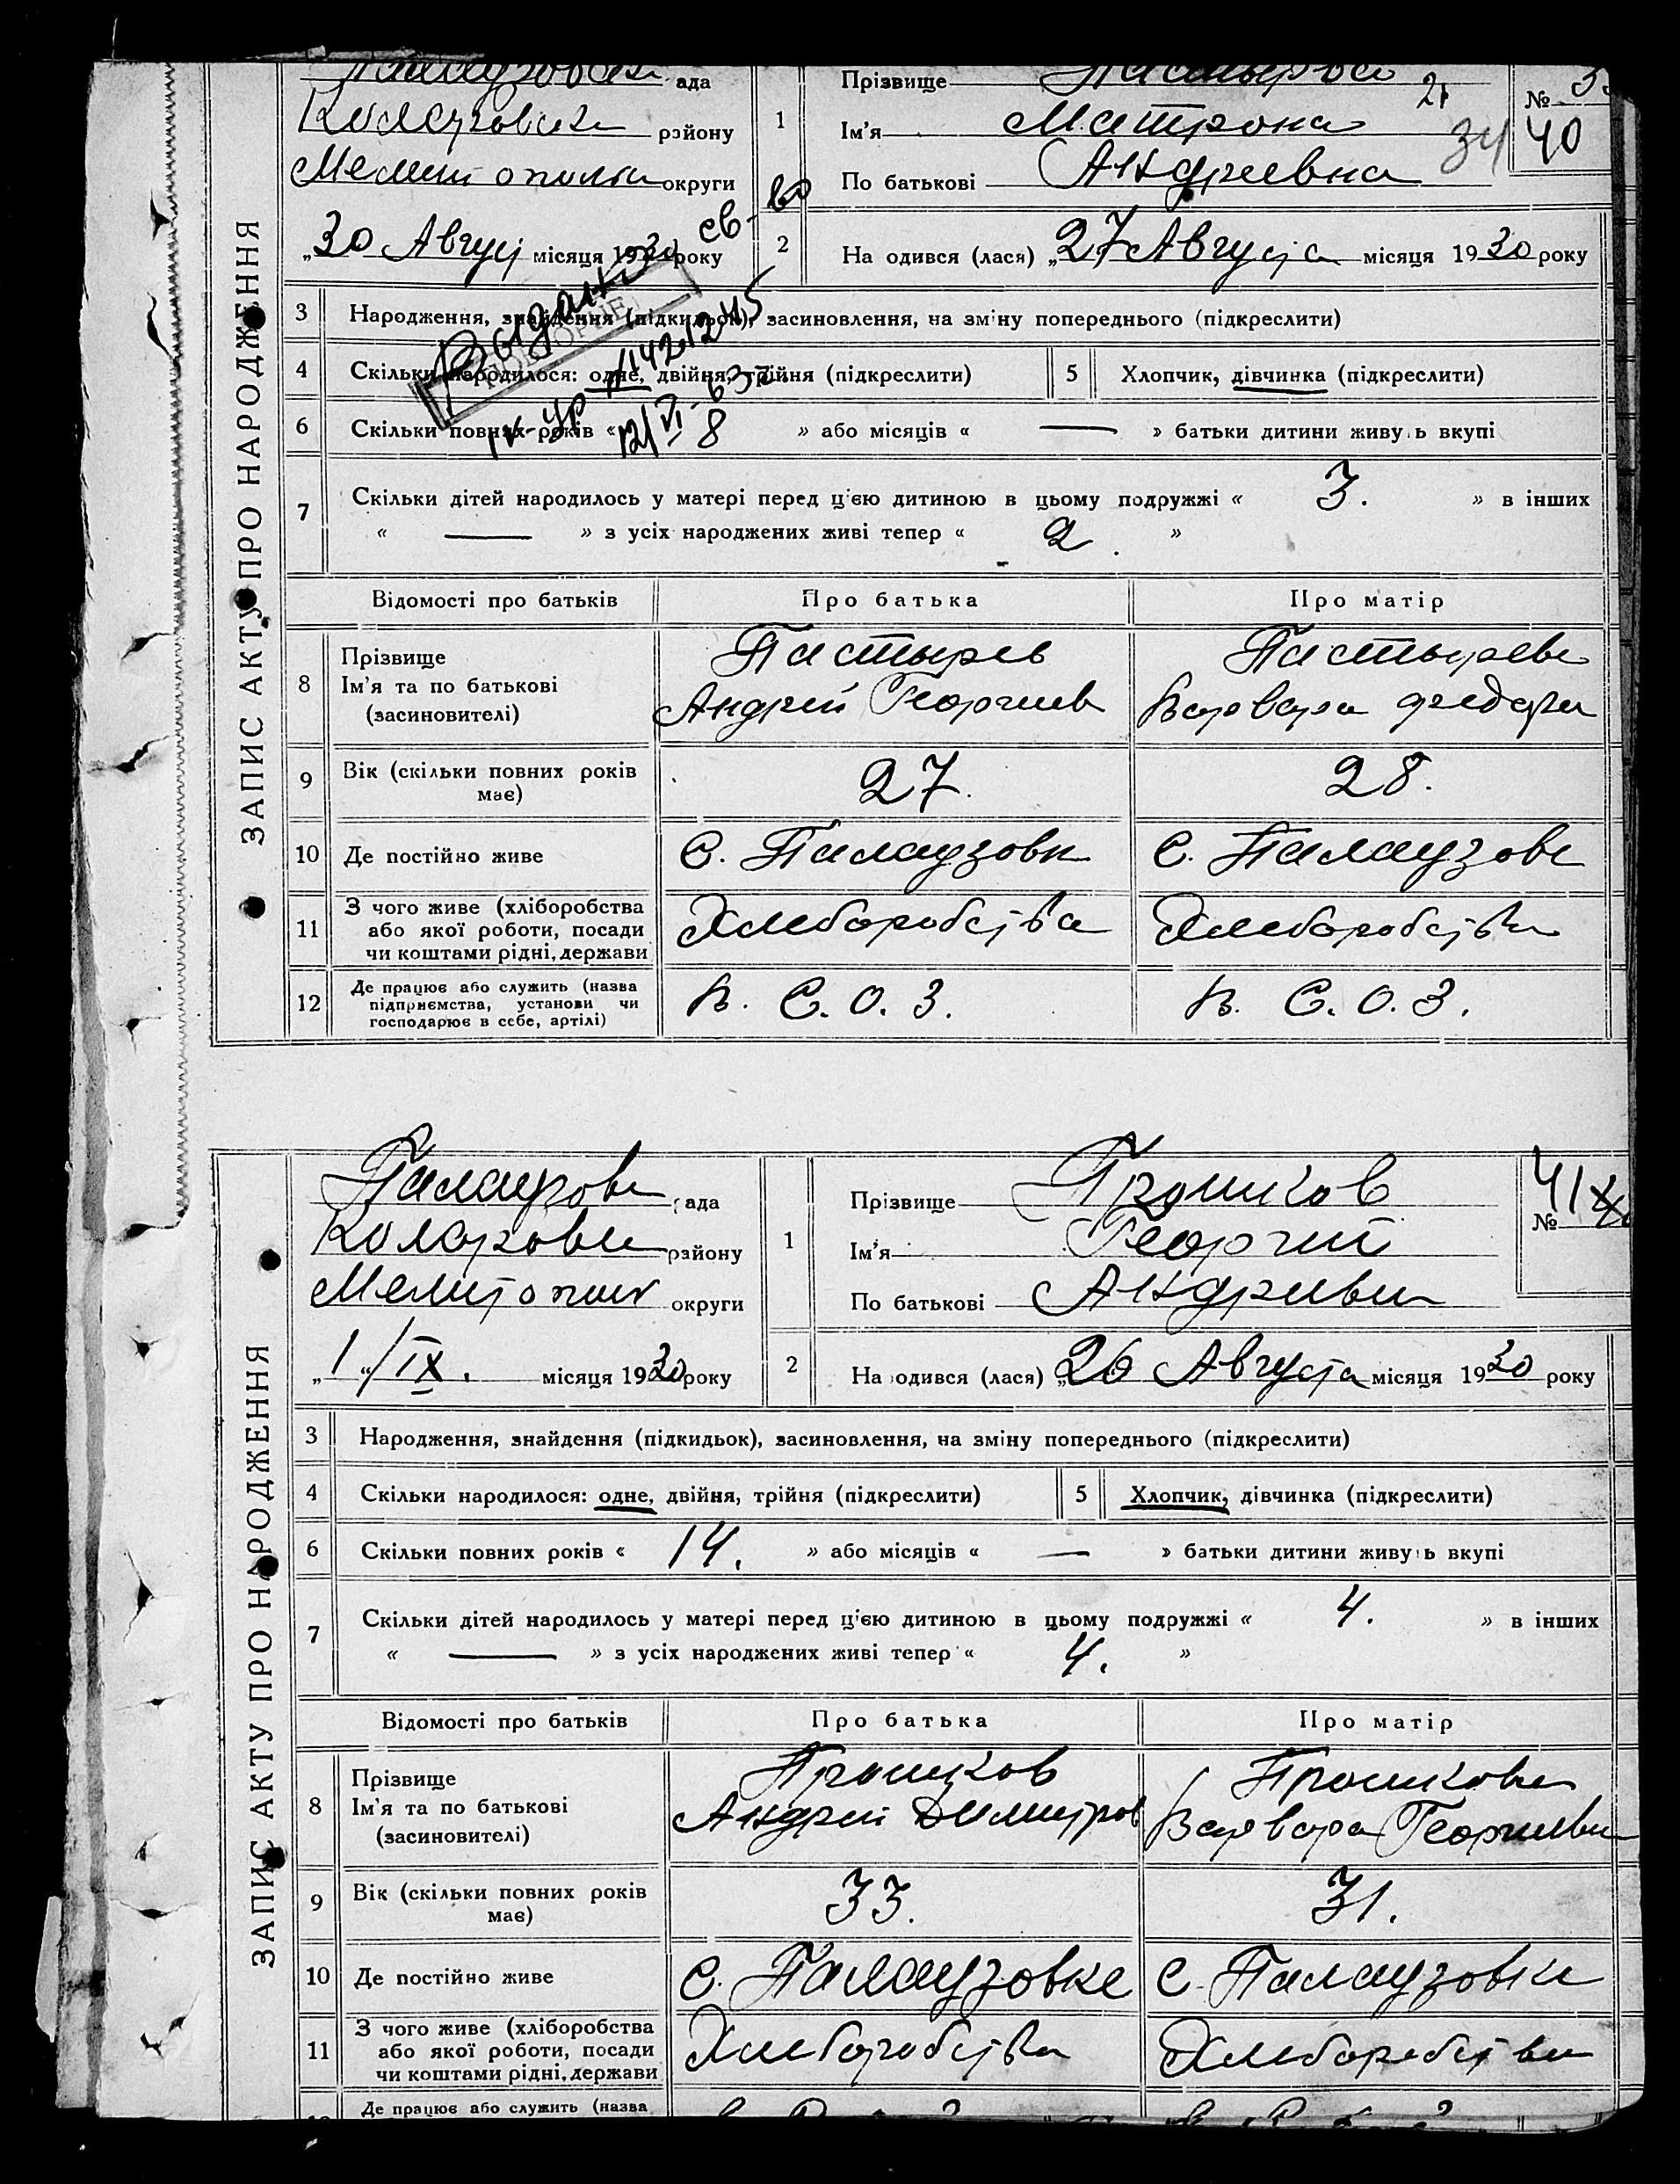 ЗАПИС АКТУ ПРО НАРОДЖЕННЯ
ада
району
округи
„30 Август місяця 1930 року
св-во
1
Прізвище
Ім'я Матрона
По батькові Андреевна
№
40
34
2 На одився (лася) „27 Августа місяця 1930 року
Выдано
ПОВТОРНЕ
3 Народження, знайдення (підкидьок), засиновлення, на зміну попереднього (підкреслити)
4 Скільки народилося: одне, двійня, трійня (підкреслити) 5 Хлопчик, дівчинка (підкреслити)
6 Скільки повних років « 8 » або місяців « — » батьки дитини живуть вкупі
7 Скільки дітей народилось у матері перед цією дитиною в цьому подружжі « 3. » в інших
« — » з усіх народжених живі тепер « 2. »
Відомості про батьків Про батька Про матір
8 Прізвище Пастырев
Ім'я та по батькові Андрей Георгиев Варвара
(засиновителі)
9 Вік (скільки повних років має) 27. 28.
10 Де постійно живе С. Палаузовк С. Палаузовк
11 З чого живе (хліборобства або якої роботи, посади чи коштами рідні, держави Хлеборобства Хлеборобства
12 Де працює або служить (назва підприємства, установи чи господарює в себе, артілі) В. С. О. З. В. С. О. З.
ЗАПИС АКТУ ПРО НАРОДЖЕННЯ
ада
району
округи
„1"/IX. місяця 1930 року
1
Прізвище Грошков
Ім'я Георгий
По батькові
41
№
2 На одився (лася) „26 Августа місяця 1930 року
3 Народження, знайдення (підкидьок), засиновлення, на зміну попереднього (підкреслити)
4 Скільки народилося: одне, двійня, трійня (підкреслити) 5 Хлопчик, дівчинка (підкреслити)
6 Скільки повних років « 14. » або місяців « — » батьки дитини живуть вкупі
7 Скільки дітей народилось у матері перед цією дитиною в цьому подружжі « 4. » в інших
« — » з усіх народжених живі тепер « 4. »
Відомості про батьків Про батька Про матір
8 Прізвище
Ім'я та по батькові Андрей Димитров Варвара Георгиевн
(засиновителі)
9 Вік (скільки повних років має) 33. 31.
10 Де постійно живе С. Палаузовке С. Палаузовке
11 З чого живе (хліборобства або якої роботи, посади чи коштами рідні, держави Хлеборобства Хлеборобства
Де працює або служить (назва